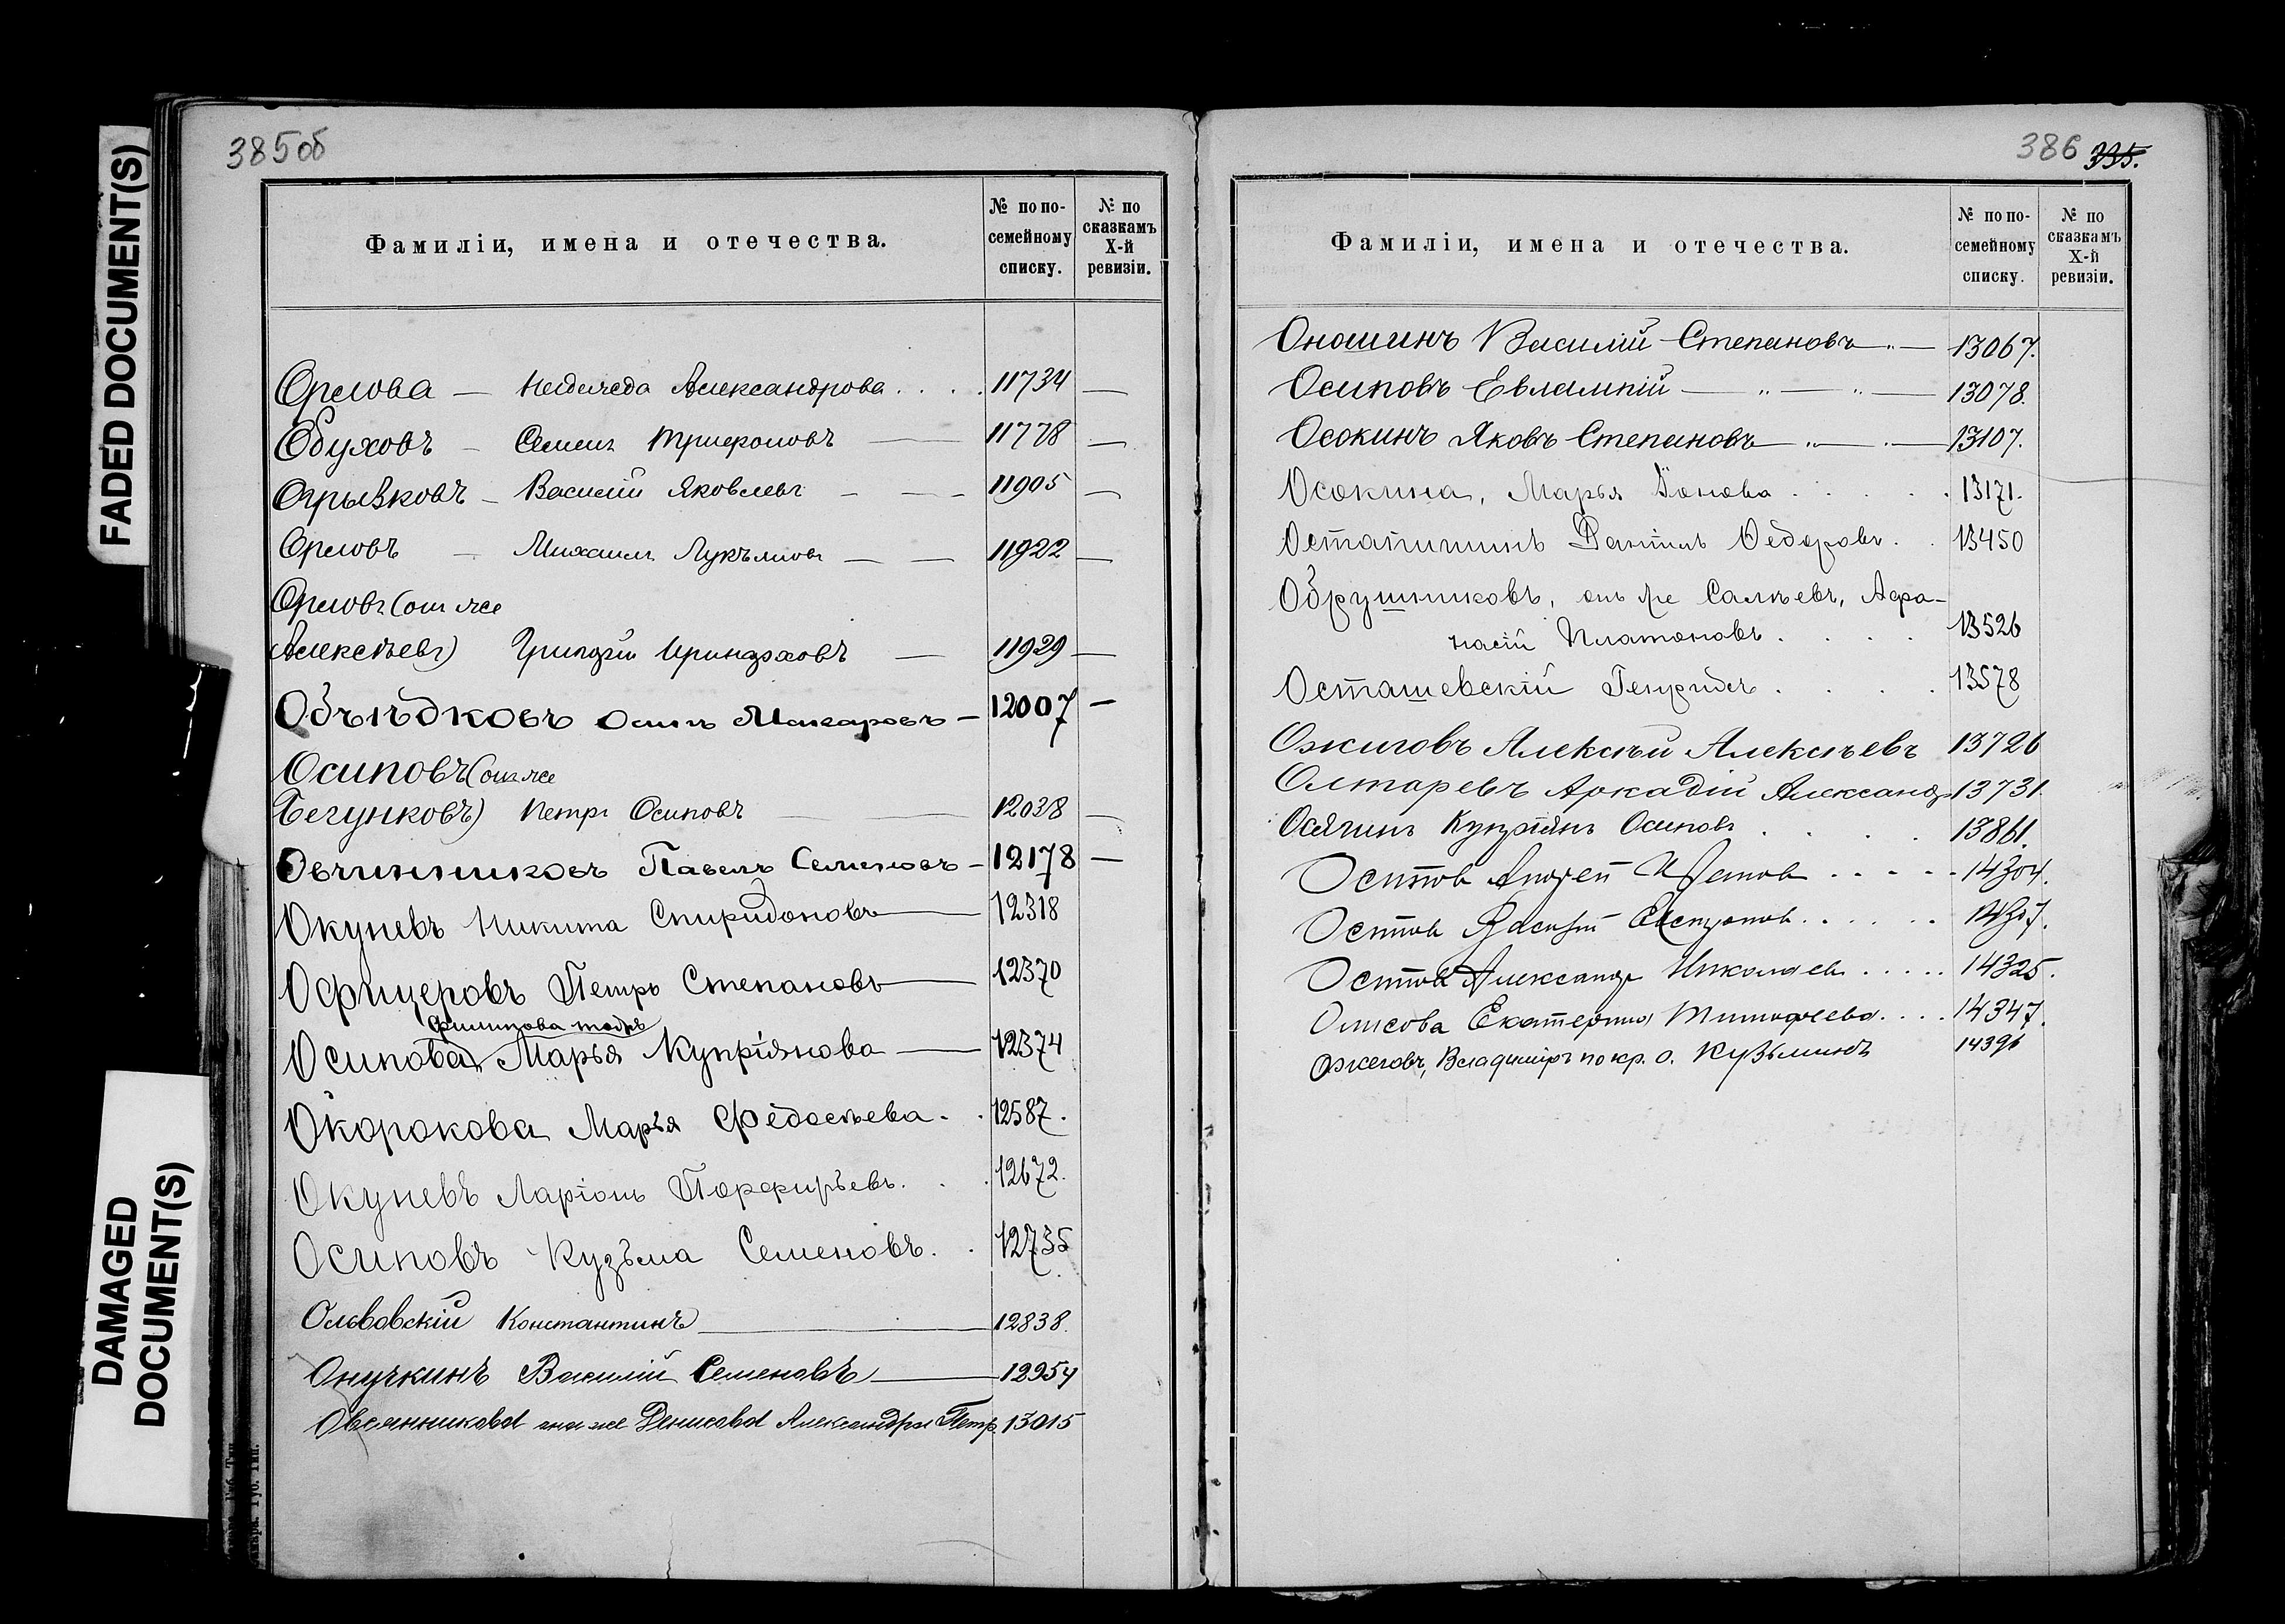 FADED DOCUMENT(S)
DAMAGED
DOCUMENT(S)
385об
Фамиліи, имена и отечества.
№ по по-
семейному
списку.
№ по
сказкамъ
X-й
ревизіи.
Орлова — Александрова . . . . 11734 —
Обуховъ — Семенъ Трифоновъ — 11778 —
Василій Яковлевъ — — — 11905 —
Орловъ — Михаилъ — — 11922 —
Орловъ (онъ же
Алексѣевъ) Григорій — 11929 —
Объѣдковъ Осипъ Макаровъ — 12007 —
Осиповъ (онъ же
Бегунковъ) Петръ Осиповъ — 12038 —
Овчинниковъ Павелъ Семеновъ — 12178 —
Окуневъ Никита Спиридоновъ — 12318
Офицеровъ Петръ Степановъ — 12370
Филипова тожъ
Осипова Марья Купріянова — 12374
Окорокова Марья Федосѣева . . 12587.
Окуневъ Ларіонъ Порфирьевъ. . . 12672.
Осиповъ Кузьма Семеновъ. . 12735
Ольвовскій Константинъ — 12838.
Онучкинъ Василій Семеновъ — 12954
Овсянникова она же Денисова Александра Петр. 13015
386 335.
Фамиліи, имена и отечества.
№ по по-
семейному
списку.
№ по
сказкамъ
X-й
ревизіи.
Оношинъ Василій Степановъ — „ — 13067.
Осиповъ Евлампій — „ — „ — 13078.
Осокинъ Яковъ Степановъ — „ — „ — 13107.
Осокина, Марья . . . . . 13171.
Даніилъ Федоровъ. . 13450
Обрушниковъ, онъ же Салѣевъ, Афа-
насій Платоновъ . . . . 13526
Осташевскій Генрихъ . . . . 13578
Ожиговъ Алексѣй Алексѣевъ 13726
Олтаревъ Аркадій Александр 13731.
Осягинъ Купріянъ Осиповъ . . . . 13861.
Андрей . . . . . 14304.
. . . . .
Александр Николаев . . . . . 14325.
Екатерина Тимофеева. . . . 14347.
Ожеговъ, Владиміръ по кр. о. Кузьминъ 1439